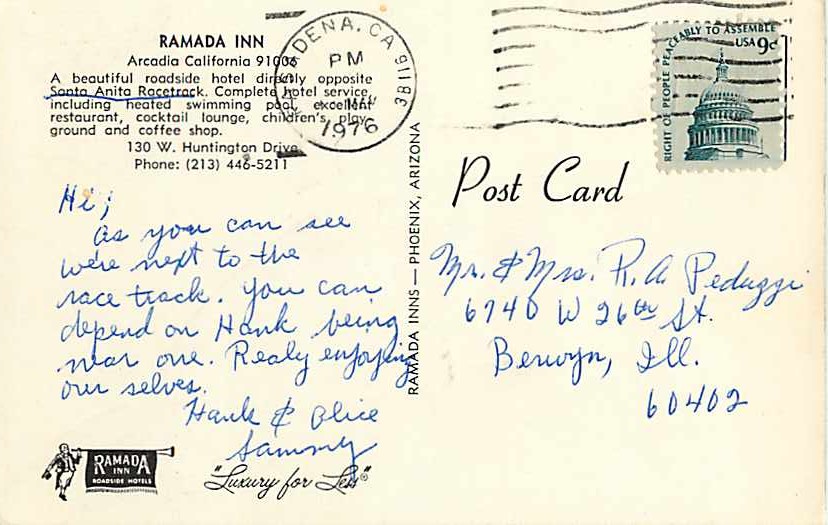 RAMADA INN
Arcadia California 91006
A beautiful roadside hotel directly opposite
Santa Anita Racetrack. Complete hotel service,
including heated swimming pool, excellent
restaurant, cocktail lounge, children's play
ground and coffee shop.
130 W. Huntington Drive
Phone: (213) 446-5211
Hi;
As you can see
we're next to the
race track. You can
depend on Hank being
near one. Realy enjoying
our selves.
Hank & Alice
Sammy
RAMADA
INN
ROADSIDE HOTELS
"Luxury for Less"®
RAMADA INNS — PHOENIX, ARIZONA
PASADENA, CA 911
PM
MAY
1976
RIGHT OF PEOPLE PEACEABLY TO ASSEMBLE
USA 9c
Post Card
Mr. & Mrs. R. A. Peduzzi
6740 W 26th St.
Berwyn, Ill.
60402